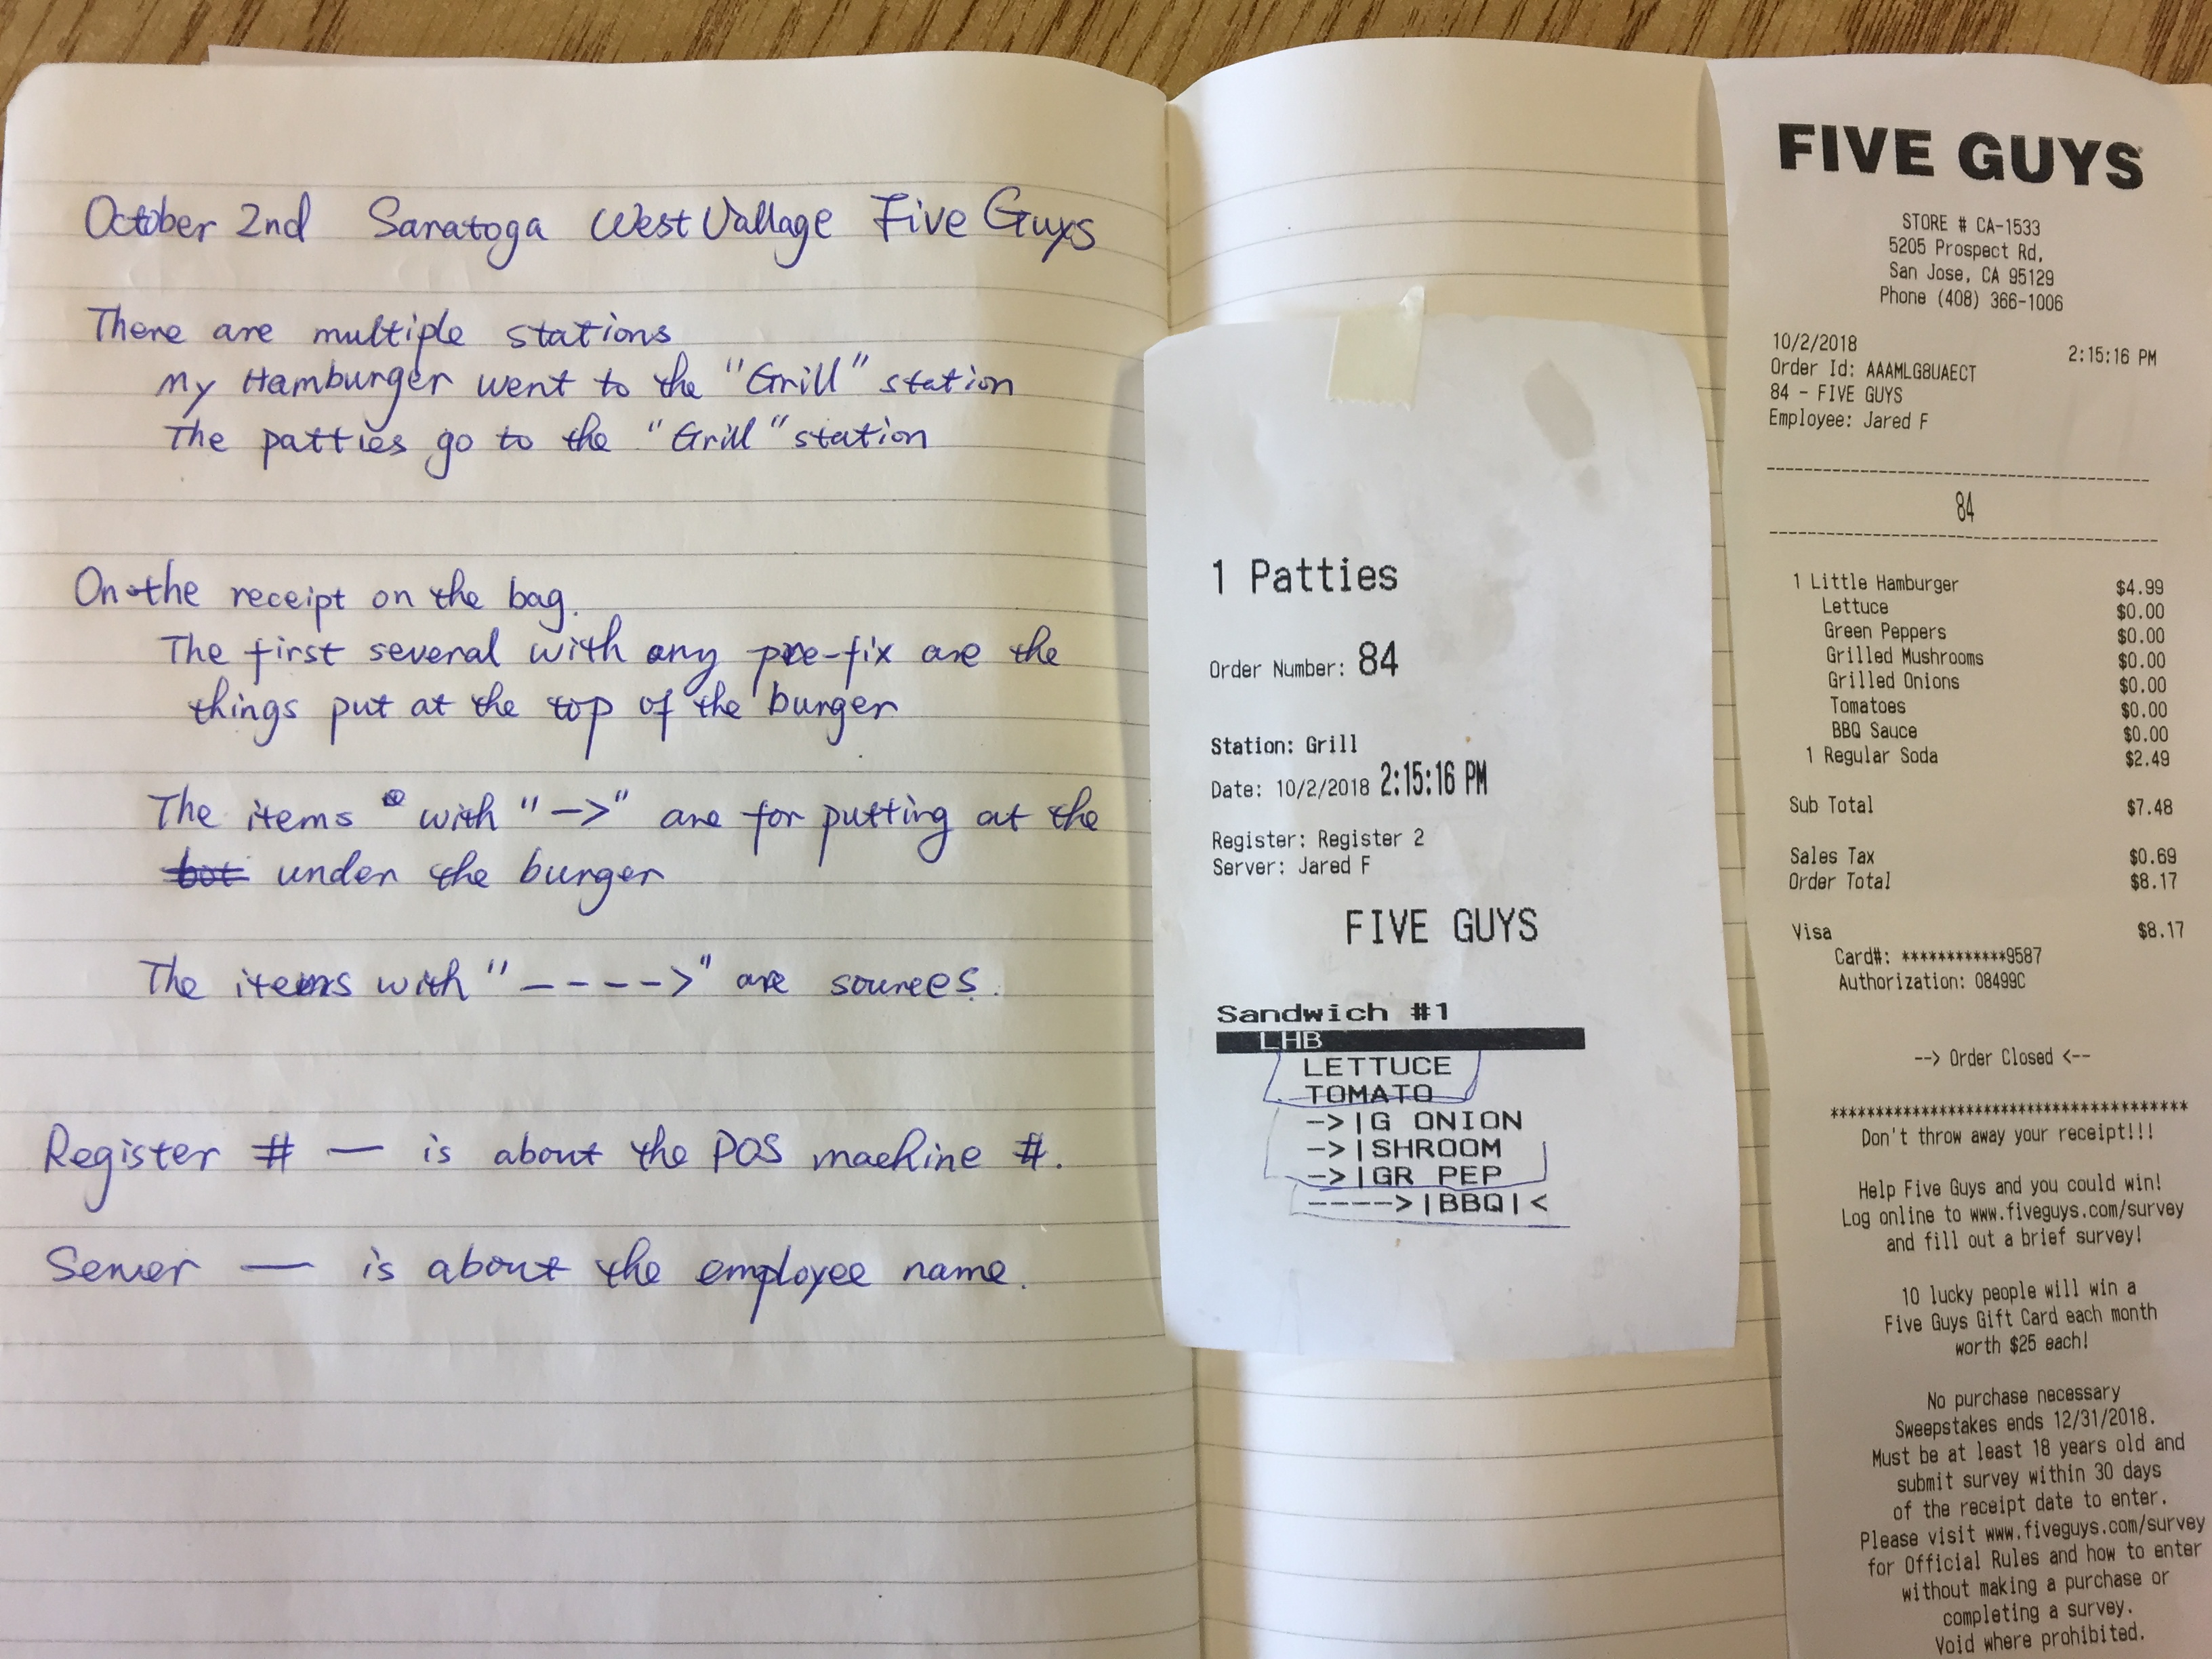 October 2nd Saratoga West Vallage Five Guys
There are multiple stations
My Hamburger went to the "Grill" station
The patties go to the "Grill" station
On the receipt on the bag.
The first several with any pre-fix are the
things put at the top of the burger
The items with "->" are for putting at the
bot under the burger
The items with "---->" are sources.
Register # — is about the POS machine #.
Server — is about the employee name.
1 Patties
Order Number: 84
Station: Grill
Date: 10/2/2018 2:15:16 PM
Register: Register 2
Server: Jared F
FIVE GUYS
Sandwich #1
LHB
LETTUCE
TOMATO
->|G ONION
->|SHROOM
->|GR PEP
---->|BBQ|<
FIVE GUYS
STORE # CA-1533
5205 Prospect Rd,
San Jose, CA 95129
Phone (408) 366-1006
10/2/2018 2:15:16 PM
Order Id: AAAMLG8UAECT
84 - FIVE GUYS
Employee: Jared F
84
1 Little Hamburger $4.99
Lettuce $0.00
Green Peppers $0.00
Grilled Mushrooms $0.00
Grilled Onions $0.00
Tomatoes $0.00
BBQ Sauce $0.00
1 Regular Soda $2.49
Sub Total $7.48
Sales Tax $0.69
Order Total $8.17
Visa $8.17
Card#: ************9587
Authorization: 08499C
--> Order Closed <--
***************************************
Don't throw away your receipt!!!
Help Five Guys and you could win!
Log online to www.fiveguys.com/survey
and fill out a brief survey!
10 lucky people will win a
Five Guys Gift Card each month
worth $25 each!
No purchase necessary
Sweepstakes ends 12/31/2018.
Must be at least 18 years old and
submit survey within 30 days
of the receipt date to enter.
Please visit www.fiveguys.com/survey
for Official Rules and how to enter
without making a purchase or
completing a survey.
Void where prohibited.